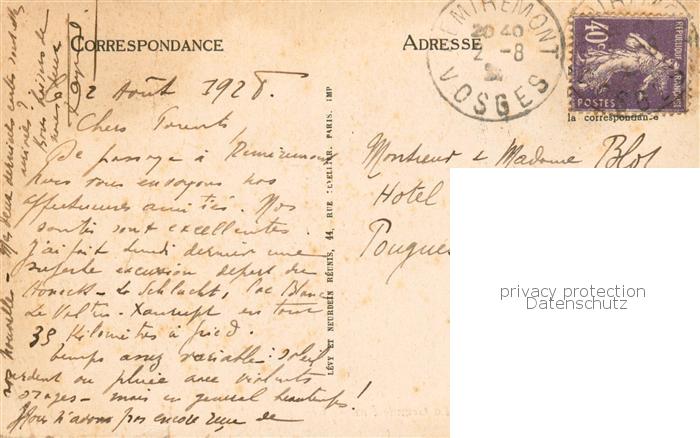 CORRESPONDANCE
le 2 Août 1928.
Chers Parents,
De passage à Remiremont
nous vous envoyons nos
affectueuses amitiés. Nos
santés sont excellentes.
J'ai fait lundi dernier une
superbe excursion départ du
Honeck - La Schlucht, Lac Blanc
Le Valtin - Xanrupt en tout
35 Kilomètres à pied.
Temps assez variable : soleil
ardent ou pluie avec violents
orages - mais en général beau temps !
Nous n'avons pas encore reçu de
vos nouvelles - Mes deux dernières cartes sont-elles
arrivées ?
LÉVY ET NEURDEIN RÉUNIS, 44, RUE LETELLIER, PARIS. IMP
ADRESSE
REMIREMONT
20 40
2 -8
VOSGES
40c
REPUBLIQUE FRANÇAISE
POSTES
la correspondance
Monsieur & Madame Blot
Hotel
Pougues
privacy protection
Datenschutz